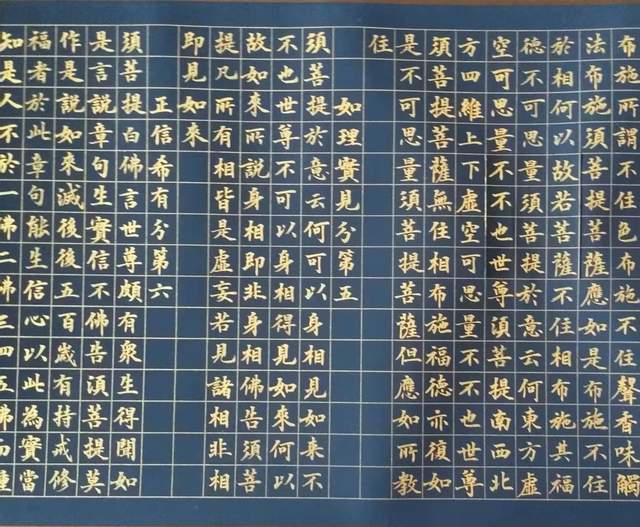 布施所謂不住色布施不住聲香味觸
法布施須菩提菩薩應如是布施不住
於相何以故若菩薩不住相布施其福
德不可思量須菩提於意云何東方虛
空可思量不不也世尊須菩提南西北
方四維上下虛空可思量不不也世尊
須菩提菩薩無住相布施福德亦復如
是不可思量須菩提菩薩但應如所教
住
如理實見分第五
須菩提於意云何可以身相見如來不
不也世尊不可以身相得見如來何以
故如來所說身相即非身相佛告須菩
提凡所有相皆是虛妄若見諸相非相
即見如來
正信希有分第六
須菩提白佛言世尊頗有衆生得聞如
是言說章句生實信不佛告須菩提莫
作是說如來滅後後五百歲有持戒修
福者於此章句能生信心以此為實當
知是人不於一佛二佛三四五佛而種